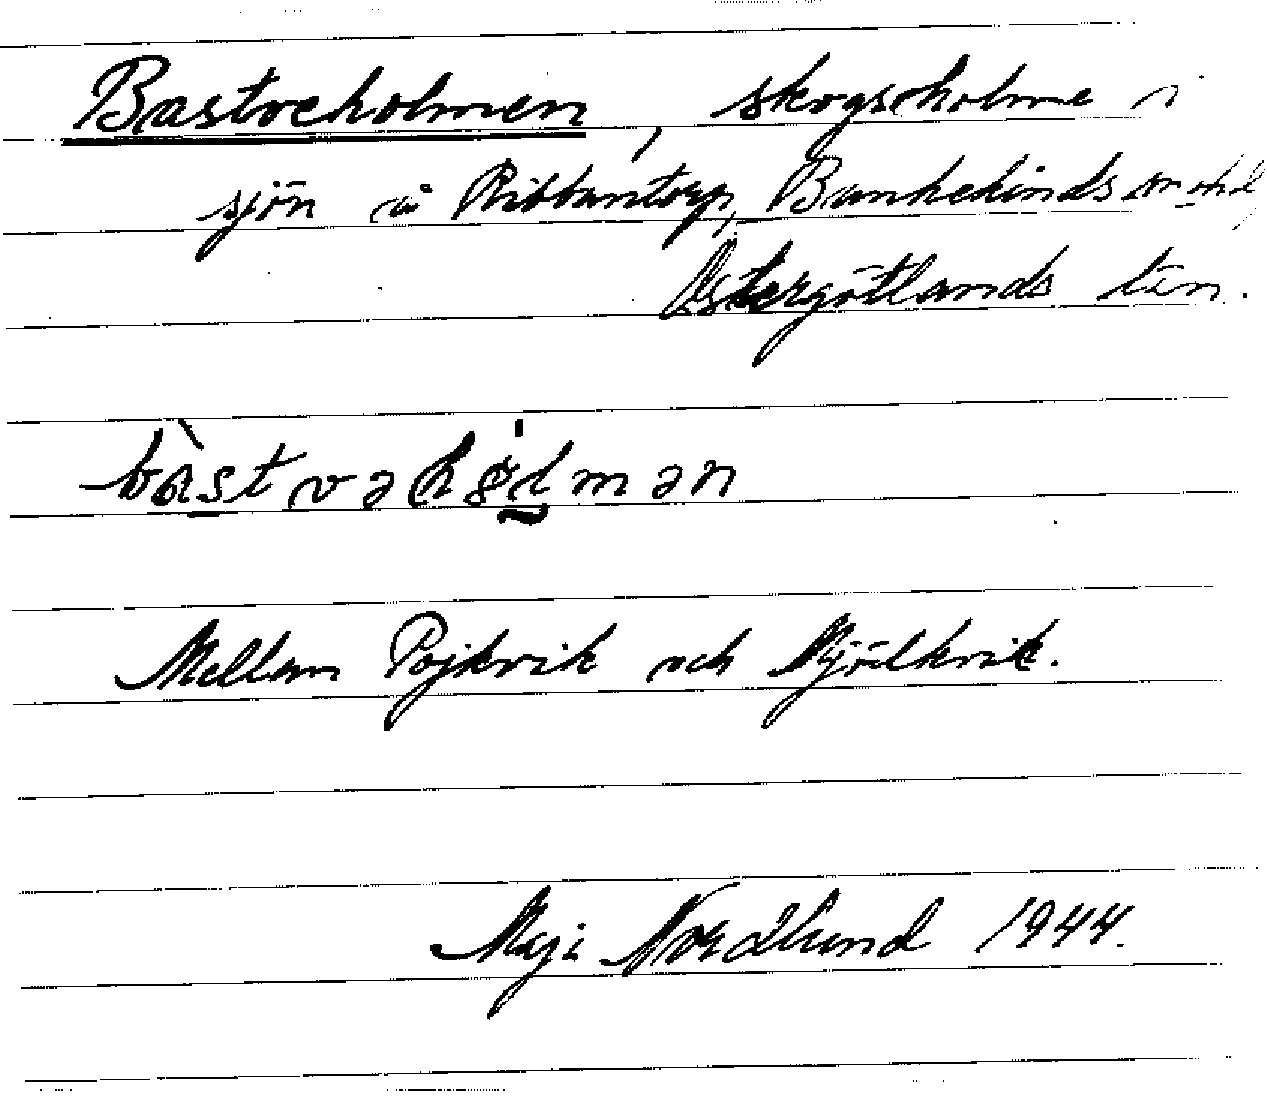 Bastveholmen, skogsholme i
sjön å Ribbantorp, Bankekinds sn o hd,
Östergötlands län.
Mellan Pojkvik och Mjölkvik.
Maji Nordlund 1944.